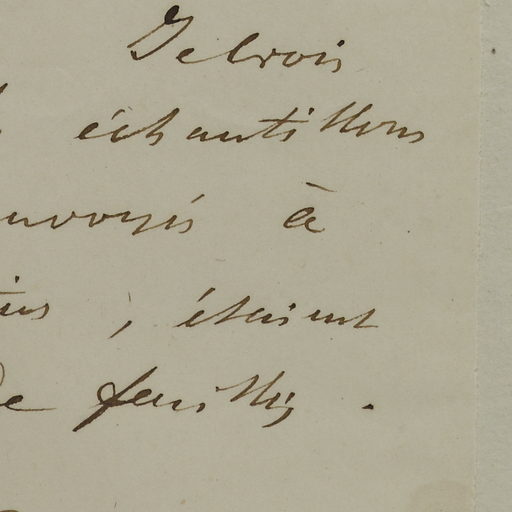 Je crois
échantillons
envoyés à
, étaient
de feuilles.